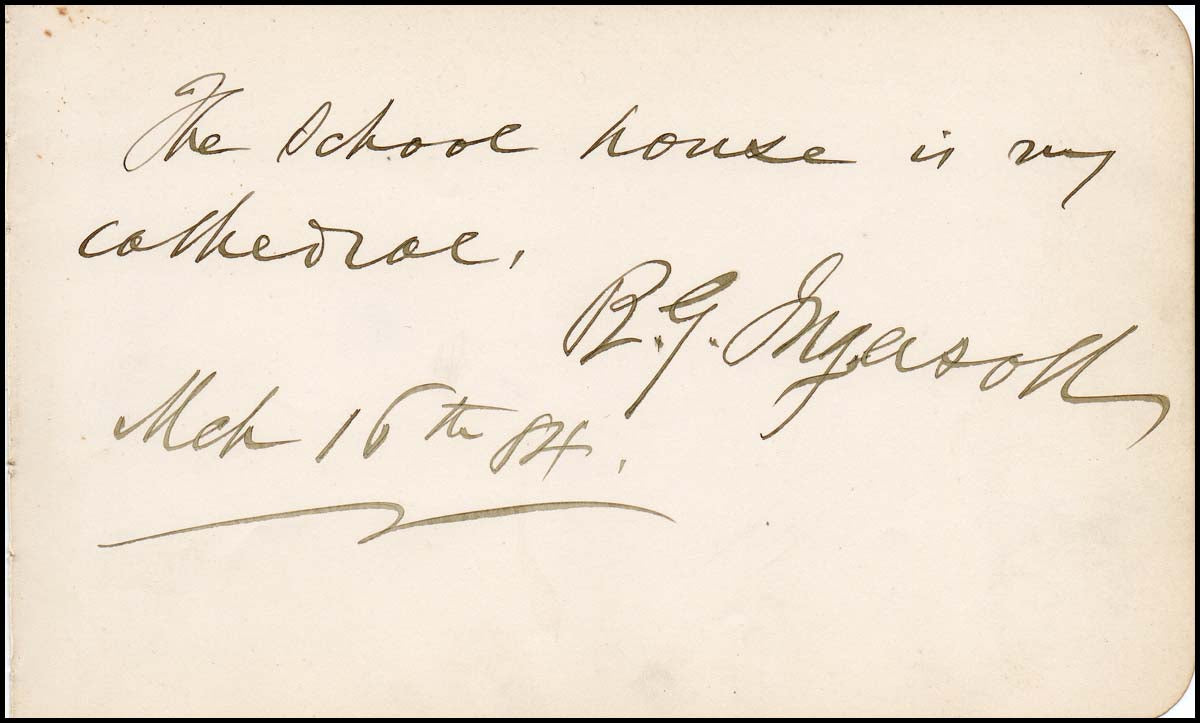 The school house is my
cathedral.
R. G. Ingersoll
Mch 16th 84.